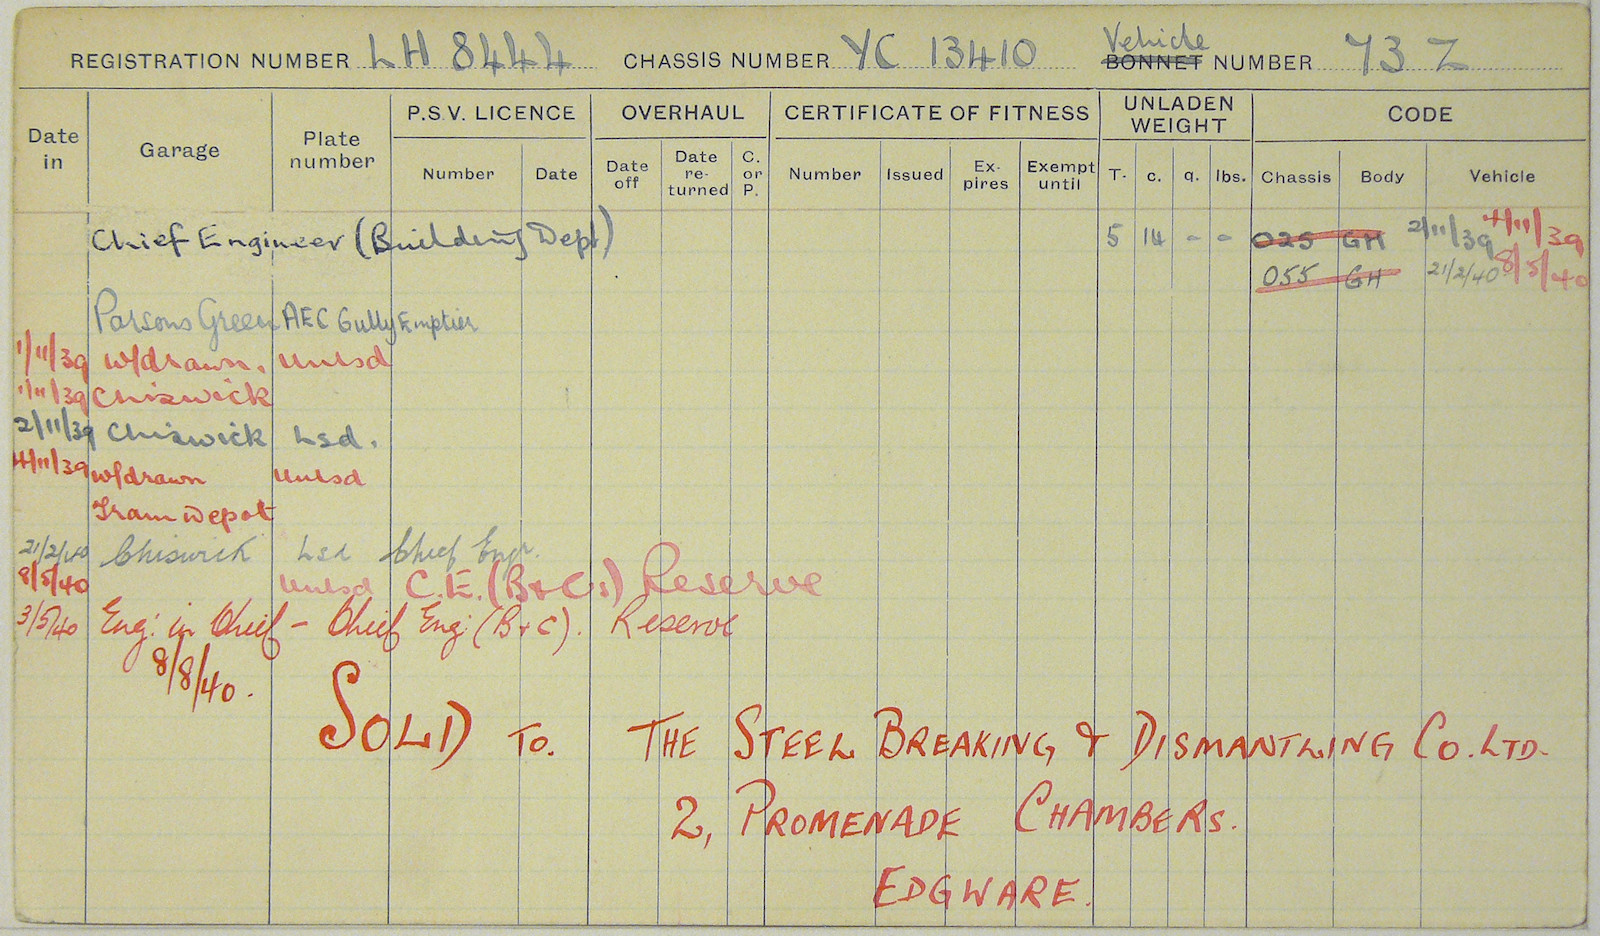 REGISTRATION NUMBER LH 8444 CHASSIS NUMBER YC 13410 Vehicle BONNET NUMBER 73 Z
Date in Garage Plate number P.S.V. LICENCE OVERHAUL CERTIFICATE OF FITNESS UNLADEN WEIGHT CODE
Number Date Date off Date re-turned C. or P. Number Issued Ex-pires Exempt until T. c. q. lbs. Chassis Body Vehicle
Chief Engineer (Building Dept) 5 14 - - 025 GH 2/11/39 4/11/39
055 GH 21/2/40 8/5/40
Parsons Green AEC Gully Emptier
1/11/39 W/drawn. Unlsd
1/11/39 Chiswick
2/11/39 Chiswick Lsd.
4/11/39 W/drawn Unlsd
Tram Depot
21/2/40 Chiswick Lsd Chief Engr.
8/5/40 Unlsd C.E. (B+Cs) Reserve
3/5/40 Eng: in Chief - Chief Eng: (B+C). Reserve
8/8/40.
SOLD TO. THE STEEL BREAKING & DISMANTLING CO. LTD.
2, PROMENADE CHAMBERS.
EDGWARE.